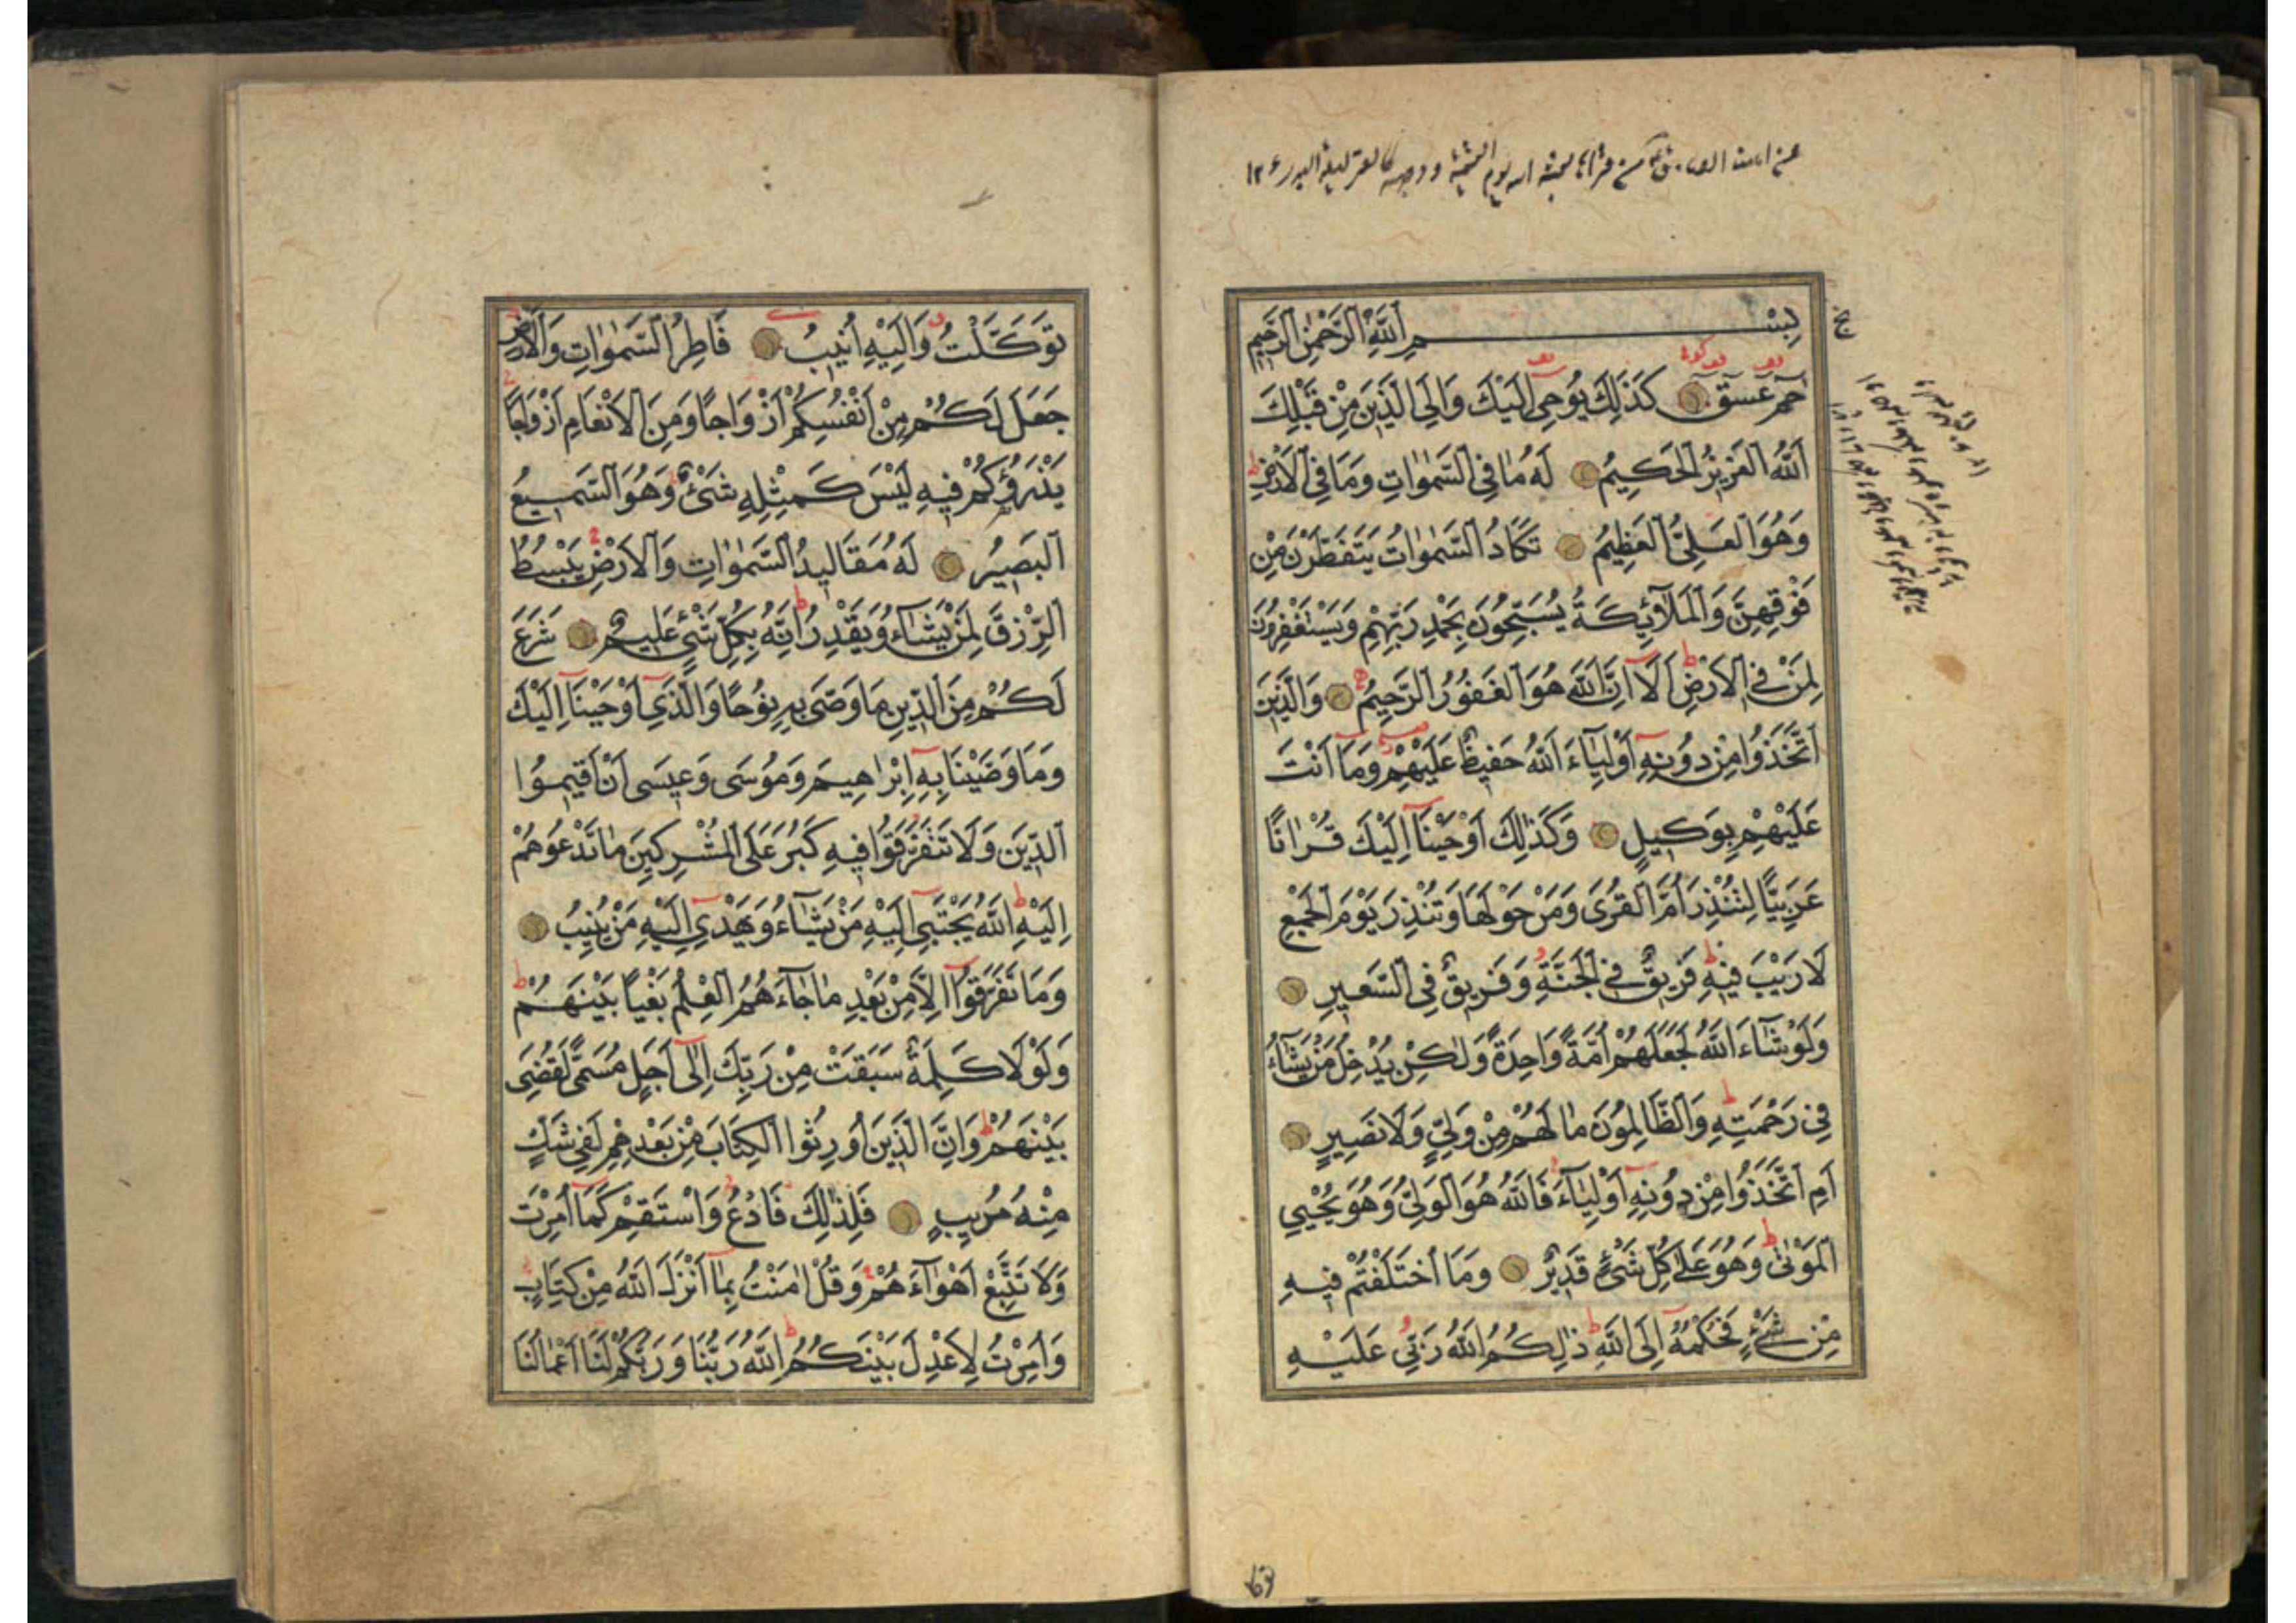 بِسْمِ اللَّهِ الرَّحْمٰنِ الرَّحِيمِ
حٰمٓ عٓسٓقٓ كَذَلِكَ يُوحِي إِلَيْكَ وَإِلَى الَّذِينَ مِنْ قَبْلِكَ
اَللَّهُ الْعَزِيزُ الْحَكِيمُ لَهُ مَا فِي السَّمٰوَاتِ وَمَا فِي الْاَرْضِ
وَهُوَ الْعَلِيُّ الْعَظِيمُ تَكَادُ السَّمٰوَاتُ يَتَفَطَّرْنَ مِنْ
فَوْقِهِنَّ وَالْمَلَآئِكَةُ يُسَبِّحُونَ بِحَمْدِ رَبِّهِمْ وَيَسْتَغْفِرُونَ
لِمَنْ فِي الْاَرْضِ اَلَآ اِنَّ اللَّهَ هُوَ الْغَفُورُ الرَّحِيمُ وَالَّذِينَ
اتَّخَذُوا مِنْ دُونِهِ اَوْلِيَآءَ اللَّهُ حَفِيظٌ عَلَيْهِمْ وَمَآ اَنْتَ
عَلَيْهِمْ بِوَكِيلٍ وَكَذٰلِكَ اَوْحَيْنَآ اِلَيْكَ قُرْاٰنًا
عَرَبِيًّا لِتُنْذِرَ اُمَّ الْقُرَى وَمَنْ حَوْلَهَا وَتُنْذِرَ يَوْمَ الْجَمْعِ
لَا رَيْبَ فِيهِ فَرِيقٌ فِي الْجَنَّةِ وَفَرِيقٌ فِي السَّعِيرِ
وَلَوْ شَآءَ اللَّهُ لَجَعَلَهُمْ اُمَّةً وَاحِدَةً وَلٰكِنْ يُدْخِلُ مَنْ يَشَآءُ
فِي رَحْمَتِهِ وَالظَّالِمُونَ مَا لَهُمْ مِنْ وَلِيٍّ وَلَا نَصِيرٍ
اَمِ اتَّخَذُوا مِنْ دُونِهِ اَوْلِيَآءَ فَاللَّهُ هُوَ الْوَلِيُّ وَهُوَ يُحْيِي
الْمَوْتٰى وَهُوَ عَلٰى كُلِّ شَيْءٍ قَدِيرٌ وَمَا اخْتَلَفْتُمْ فِيهِ
مِنْ شَيْءٍ فَحُكْمُهُ اِلَى اللَّهِ ذٰلِكُمُ اللَّهُ رَبِّي عَلَيْهِ
تَوَكَّلْتُ وَاِلَيْهِ اُنِيبُ فَاطِرُ السَّمٰوَاتِ وَالْاَرْضِ
جَعَلَ لَكُمْ مِنْ اَنْفُسِكُمْ اَزْوَاجًا وَمِنَ الْاَنْعَامِ اَزْوَاجًا
يَذْرَؤُكُمْ فِيهِ لَيْسَ كَمِثْلِهِ شَيْءٌ وَهُوَ السَّمِيعُ
الْبَصِيرُ لَهُ مَقَالِيدُ السَّمٰوَاتِ وَالْاَرْضِ يَبْسُطُ
الرِّزْقَ لِمَنْ يَشَآءُ وَيَقْدِرُ اِنَّهُ بِكُلِّ شَيْءٍ عَلِيمٌ شَرَعَ
لَكُمْ مِنَ الدِّينِ مَا وَصَّى بِهِ نُوحًا وَالَّذِي اَوْحَيْنَآ اِلَيْكَ
وَمَا وَصَّيْنَا بِهِ اِبْرَاهِيمَ وَمُوسَى وَعِيسَى اَنْ اَقِيمُوا
الدِّينَ وَلَا تَتَفَرَّقُوا فِيهِ كَبُرَ عَلَى الْمُشْرِكِينَ مَا تَدْعُوهُمْ
اِلَيْهِ اللَّهُ يَجْتَبِي اِلَيْهِ مَنْ يَشَآءُ وَيَهْدِي اِلَيْهِ مَنْ يُنِيبُ
وَمَا تَفَرَّقُوا اِلَّا مِنْ بَعْدِ مَا جَآءَهُمُ الْعِلْمُ بَغْيًا بَيْنَهُمْ
وَلَوْلَا كَلِمَةٌ سَبَقَتْ مِنْ رَبِّكَ اِلٰى اَجَلٍ مُسَمًّى لَقُضِيَ
بَيْنَهُمْ وَاِنَّ الَّذِينَ اُورِثُوا الْكِتَابَ مِنْ بَعْدِهِمْ لَفِي شَكٍّ
مِنْهُ مُرِيبٍ فَلِذٰلِكَ فَادْعُ وَاسْتَقِمْ كَمَآ اُمِرْتَ
وَلَا تَتَّبِعْ اَهْوَآءَهُمْ وَقُلْ اٰمَنْتُ بِمَآ اَنْزَلَ اللَّهُ مِنْ كِتَابٍ
وَاُمِرْتُ لِاَعْدِلَ بَيْنَكُمُ اللَّهُ رَبُّنَا وَرَبُّكُمْ لَنَآ اَعْمَالُنَا